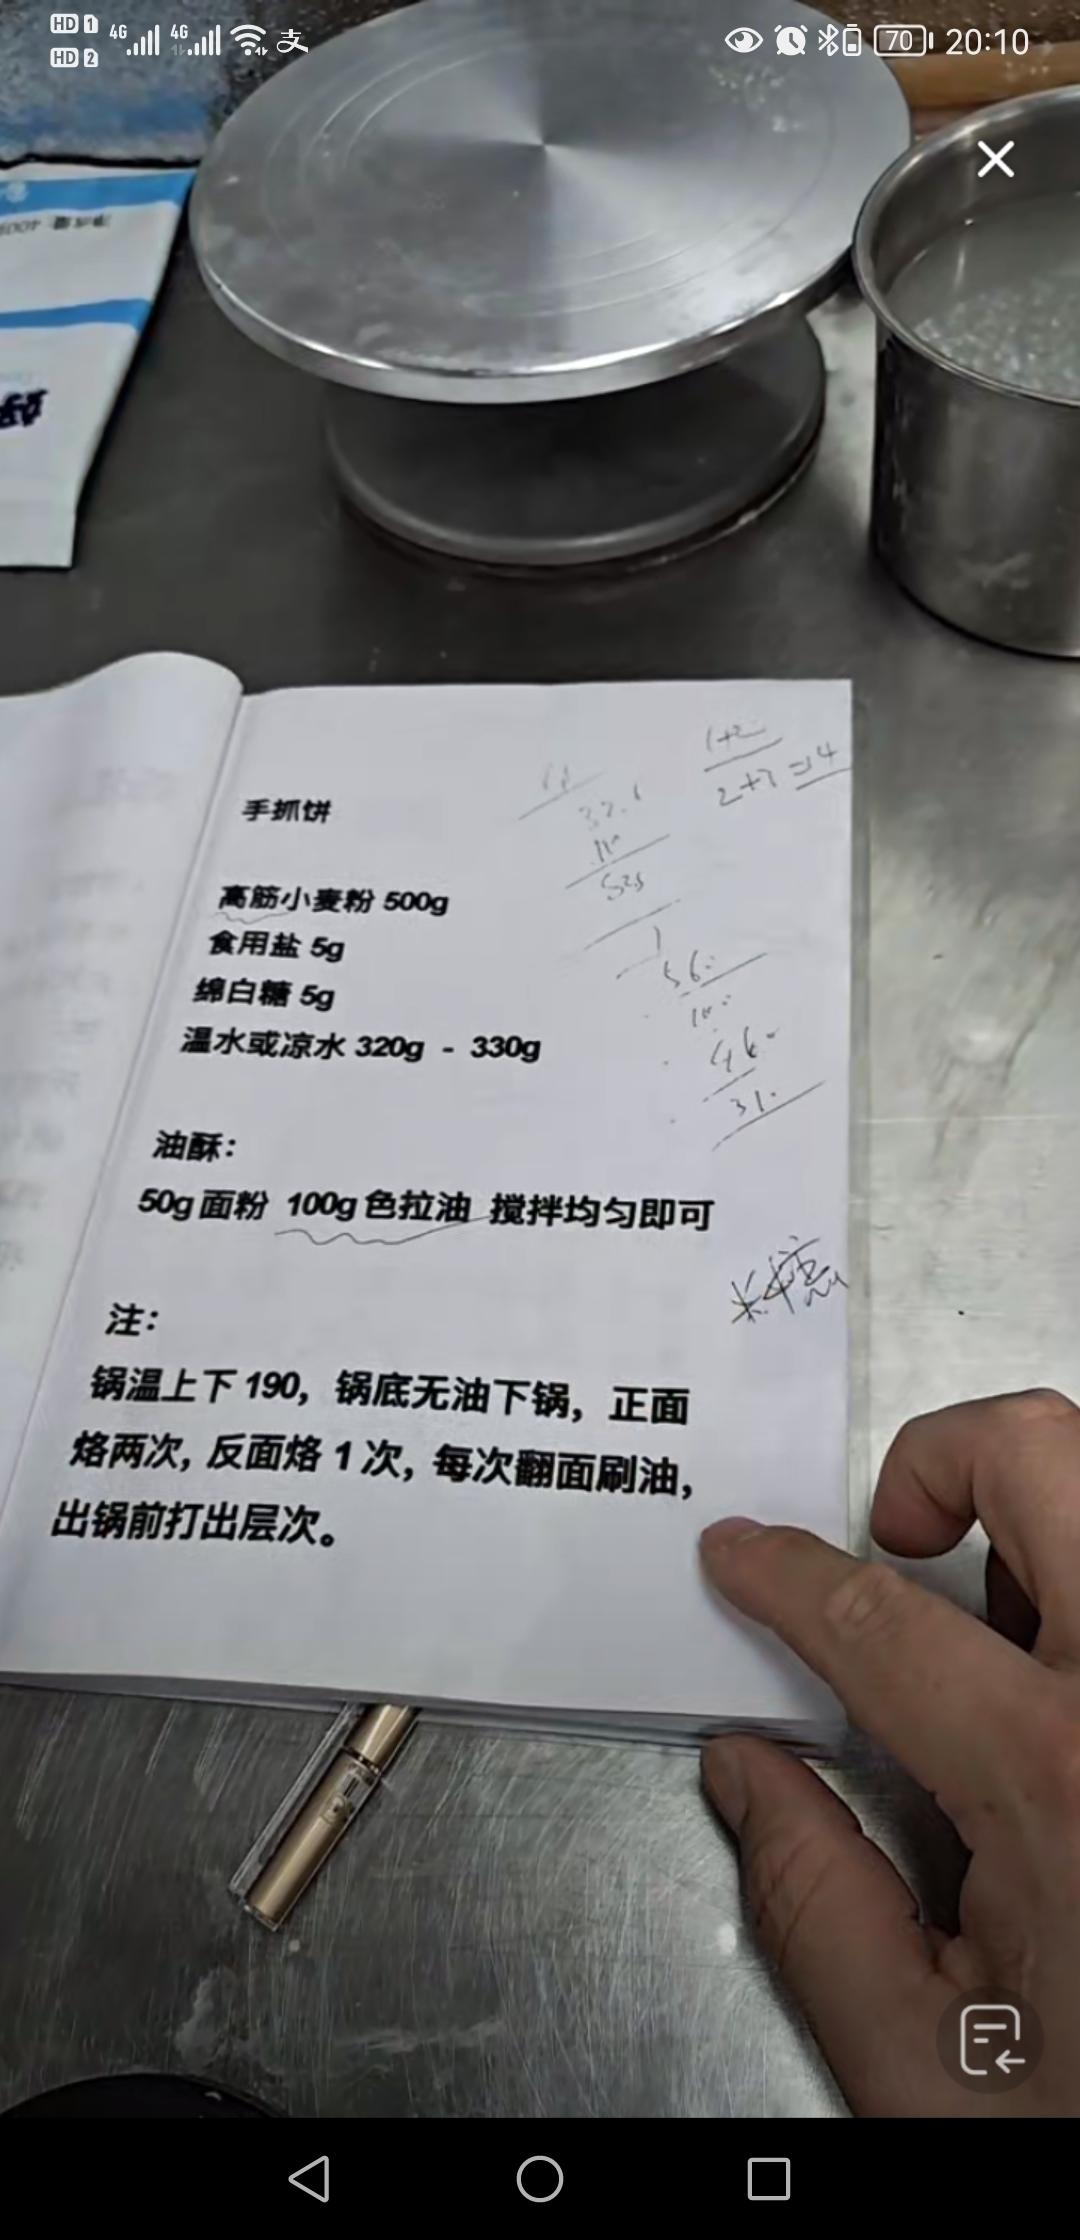 HD 1 4G 4G 支 70 20:10
HD 2
手抓饼
高筋小麦粉 500g
食用盐 5g
绵白糖 5g
温水或凉水 320g - 330g
油酥：
50g 面粉 100g 色拉油 搅拌均匀即可
注：
锅温上下 190，锅底无油下锅，正面
烙两次，反面烙 1 次，每次翻面刷油，
出锅前打出层次。